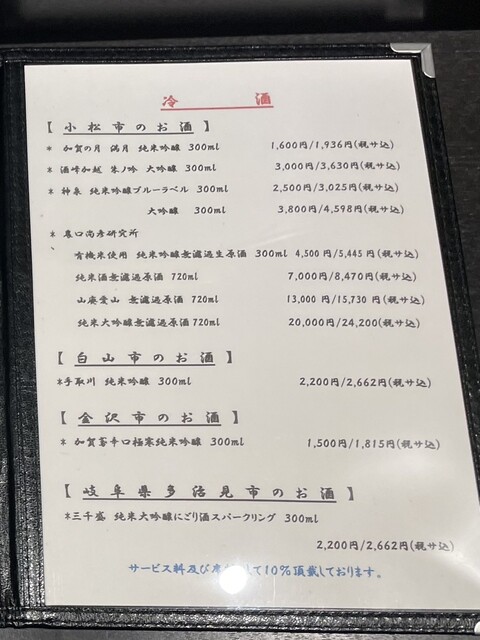 冷酒
【小松市のお酒】
* 加賀の月 満月 純米吟醸 300ml 1,600円/1,936円(税サ込)
* 酒峰加越 朱ノ吟 大吟醸 300ml 3,000円/3,630円(税サ込)
* 神泉 純米吟醸ブルーラベル 300ml 2,500円/3,025円(税サ込)
大吟醸 300ml 3,800円/4,598円(税サ込)
* 農口尚彦研究所
有機米使用 純米吟醸無濾過生原酒 300ml 4,500円/5,445円(税サ込)
純米酒無濾過原酒 720ml 7,000円/8,470円(税サ込)
山廃愛山 無濾過原酒 720ml 13,000円/15,730円(税サ込)
純米大吟醸無濾過原酒720ml 20,000円/24,200(税サ込)
【白山市のお酒】
*手取川 純米吟醸 300ml 2,200円/2,662円(税サ込)
【金沢市のお酒】
* 加賀鳶辛口極寒純米吟醸 300ml 1,500円/1,815円(税サ込)
【岐阜県多治見市のお酒】
*三千盛 純米大吟醸にごり酒スパークリング 300ml
2,200円/2,662円(税サ込)
サービス料及び席して10%頂戴しております。